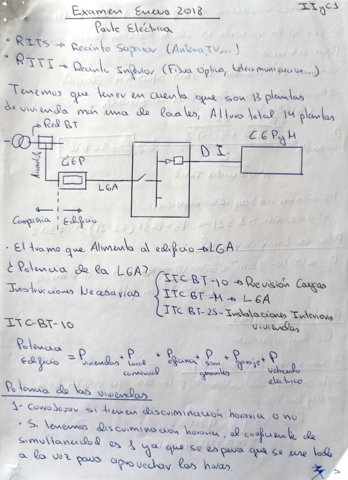 Examen Enero 2018
IIyCS
Parte Eléctrica
• RITS → Recinto Superior (Antena TV...)
• RITI → Recinto Inferior (Fibra Optica, telecomunicacion...)
Tenemos que tener en cuenta que son 13 plantas
de vivienda más una de locales, Altura total 14 plantas
Red BT
CGP
LGA
D I.
CGPyM
Compañia
Edificio
• El tramo que Alimenta al edificio → LGA
¿Potencia de la LGA?
Instruciones Necesarias
ITC BT-10 → Previsión Cargas
ITC BT-14 → LGA
ITC BT-25 → Instalaciones Interiores
viviendas
ITC-BT-10
Potencia
Edificio = P viviendas + P local comercial + P oficina + P serv generales + P garaje + P vehiculo electrico
Potencia de las viviendas
1- Comprobar si tienen discriminación horaria o no
• Si tenemos discriminación horaria, el coeficiente de
simultaneidad es 1 ya que se espera que se use todo
a la vez para aprovechar las horas